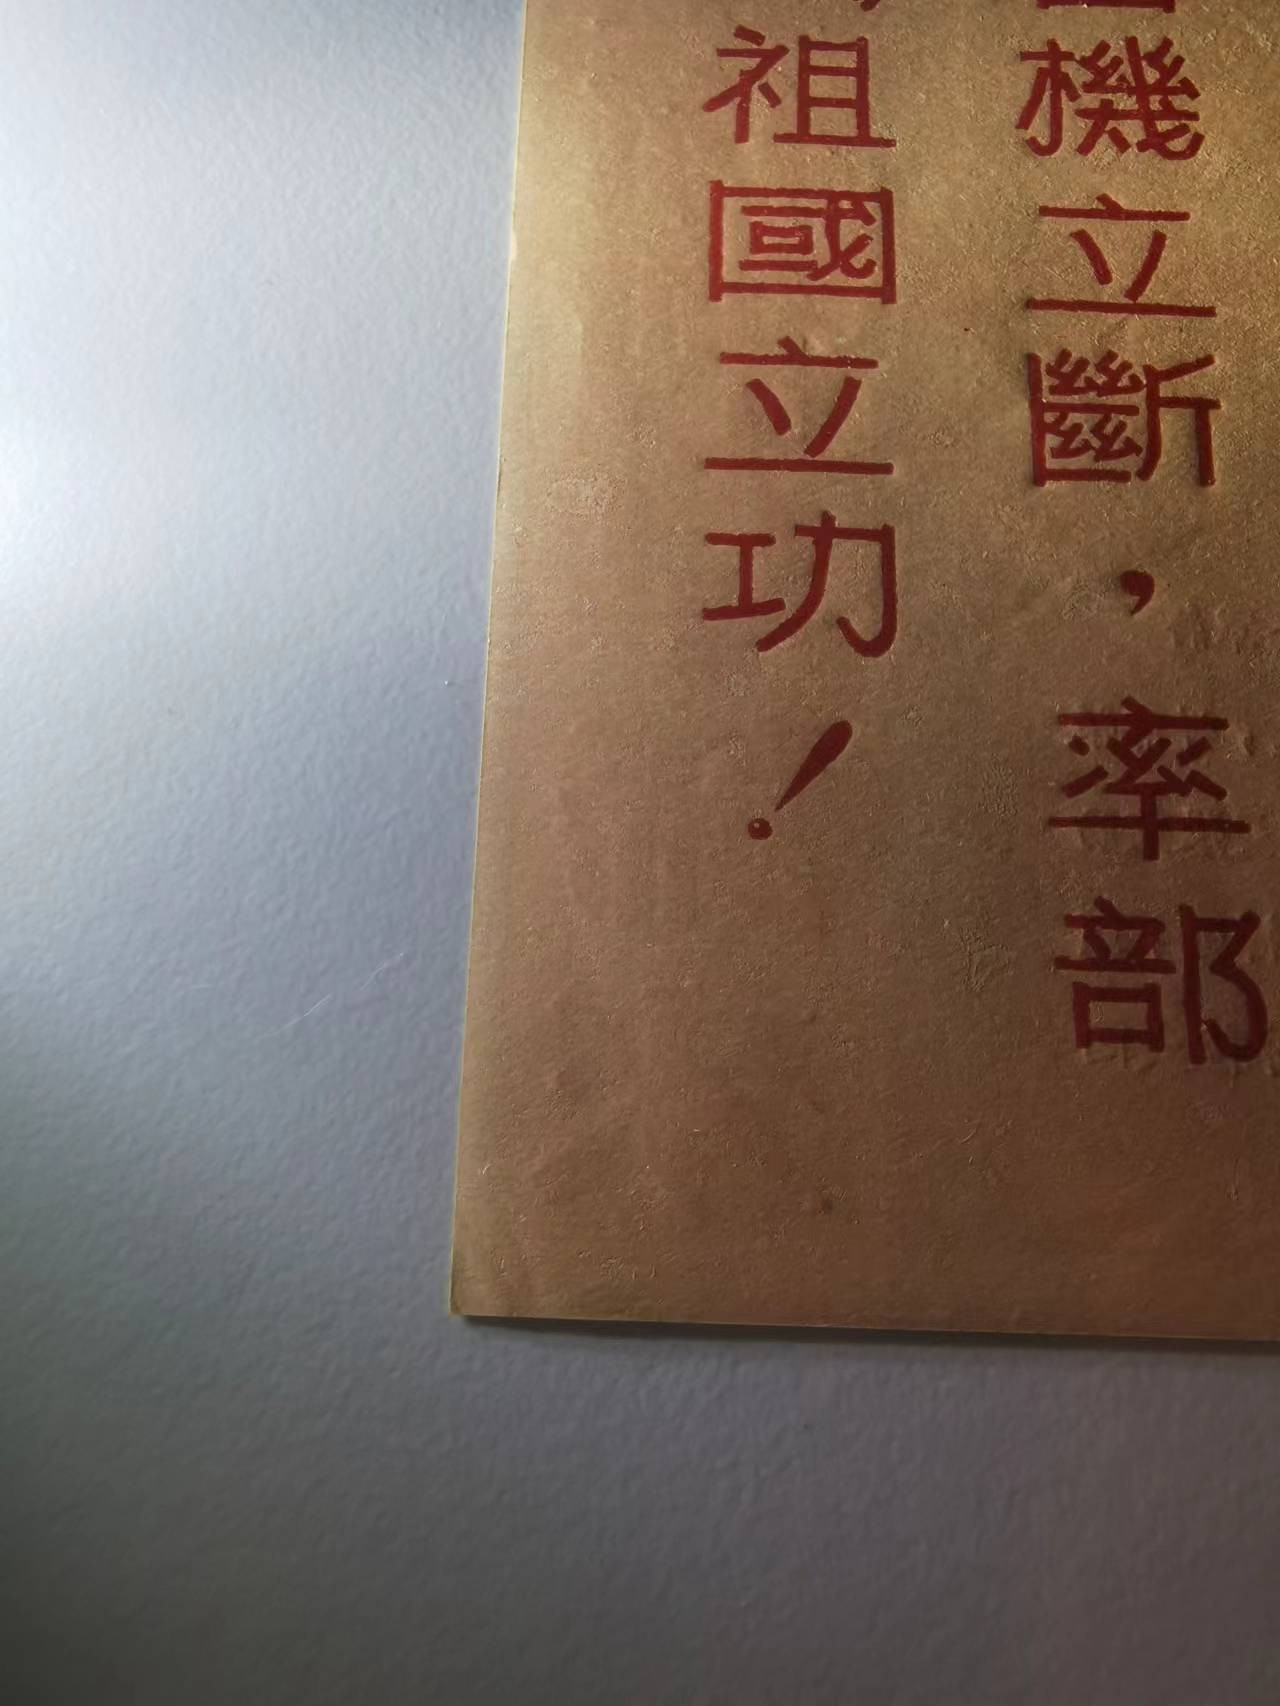 機立斷，率部
祖國立功！